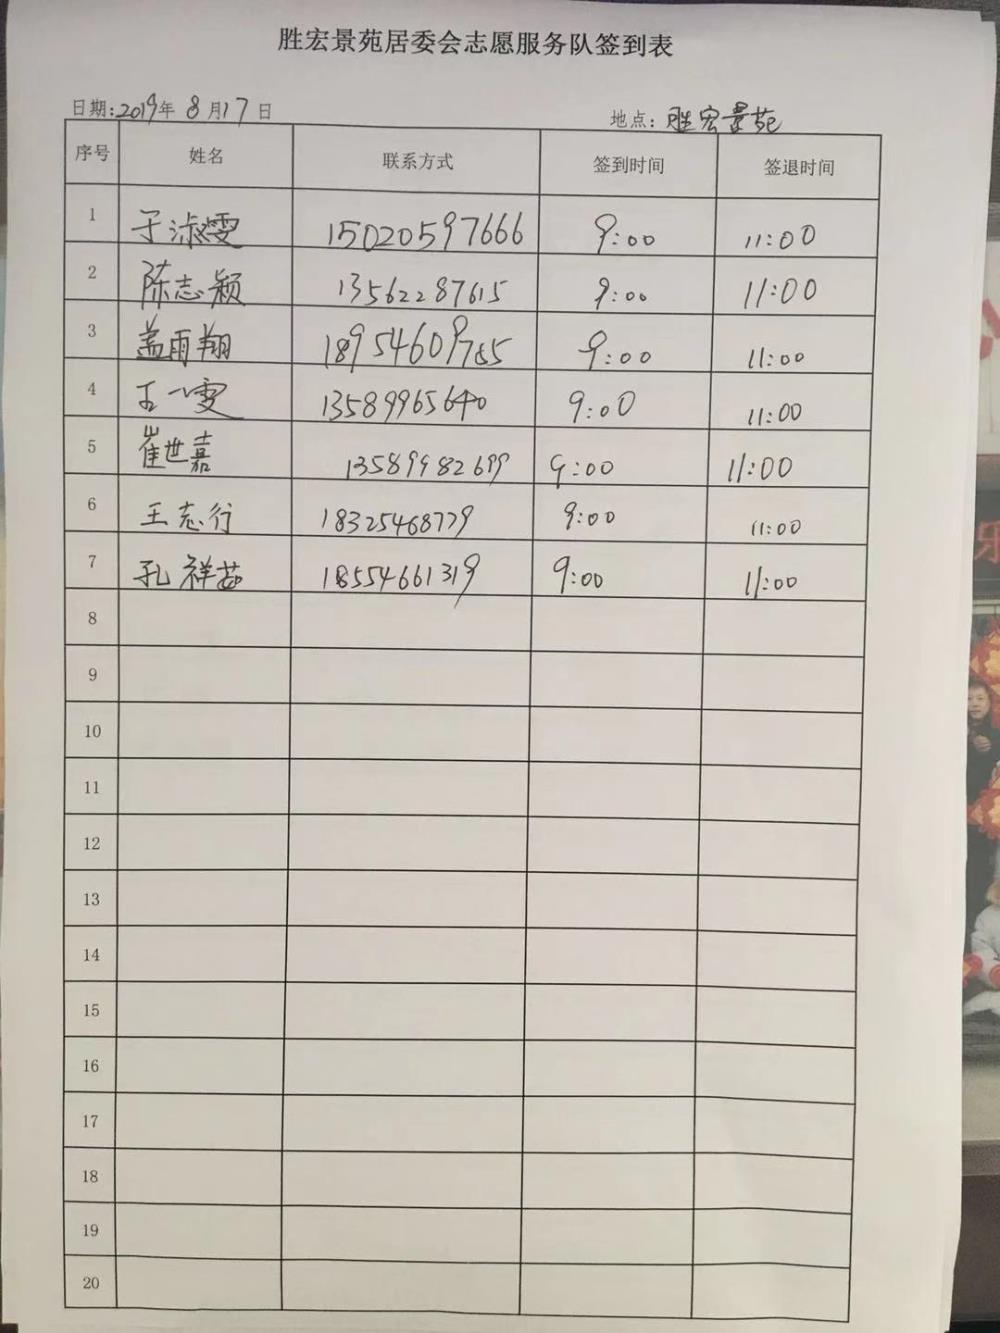 胜宏景苑居委会志愿服务队签到表
日期:2019年 8月17日 地点:胜宏景苑
序号 姓名 联系方式 签到时间 签退时间
1 于淑雯 15020597666 9:00 11:00
2 陈志颖 13562287615 9:00 11:00
3 盖雨翔 18954609785 9:00 11:00
4 王一雯 13589965640 9:00 11:00
5 崔世嘉 13589982699 9:00 11:00
6 王志行 18325468779 9:00 11:00
7 孔祥茹 18554661319 9:00 11:00
8
9
10
11
12
13
14
15
16
17
18
19
20
乐